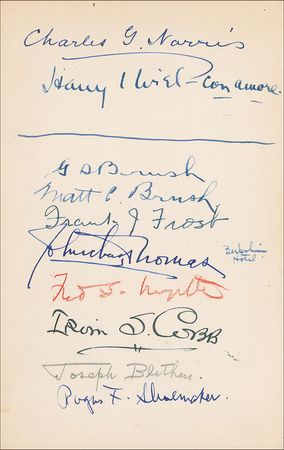 Charles G. Norris
Harry I Wiel - con amore.
G S Brush
Matt C. Brush
Frank J Frost
John Chas. Thomas
Berkshire Hotel
Fred S.
Irvin S. Cobb
Joseph Blethen.
Rogers F. Shoemaker.